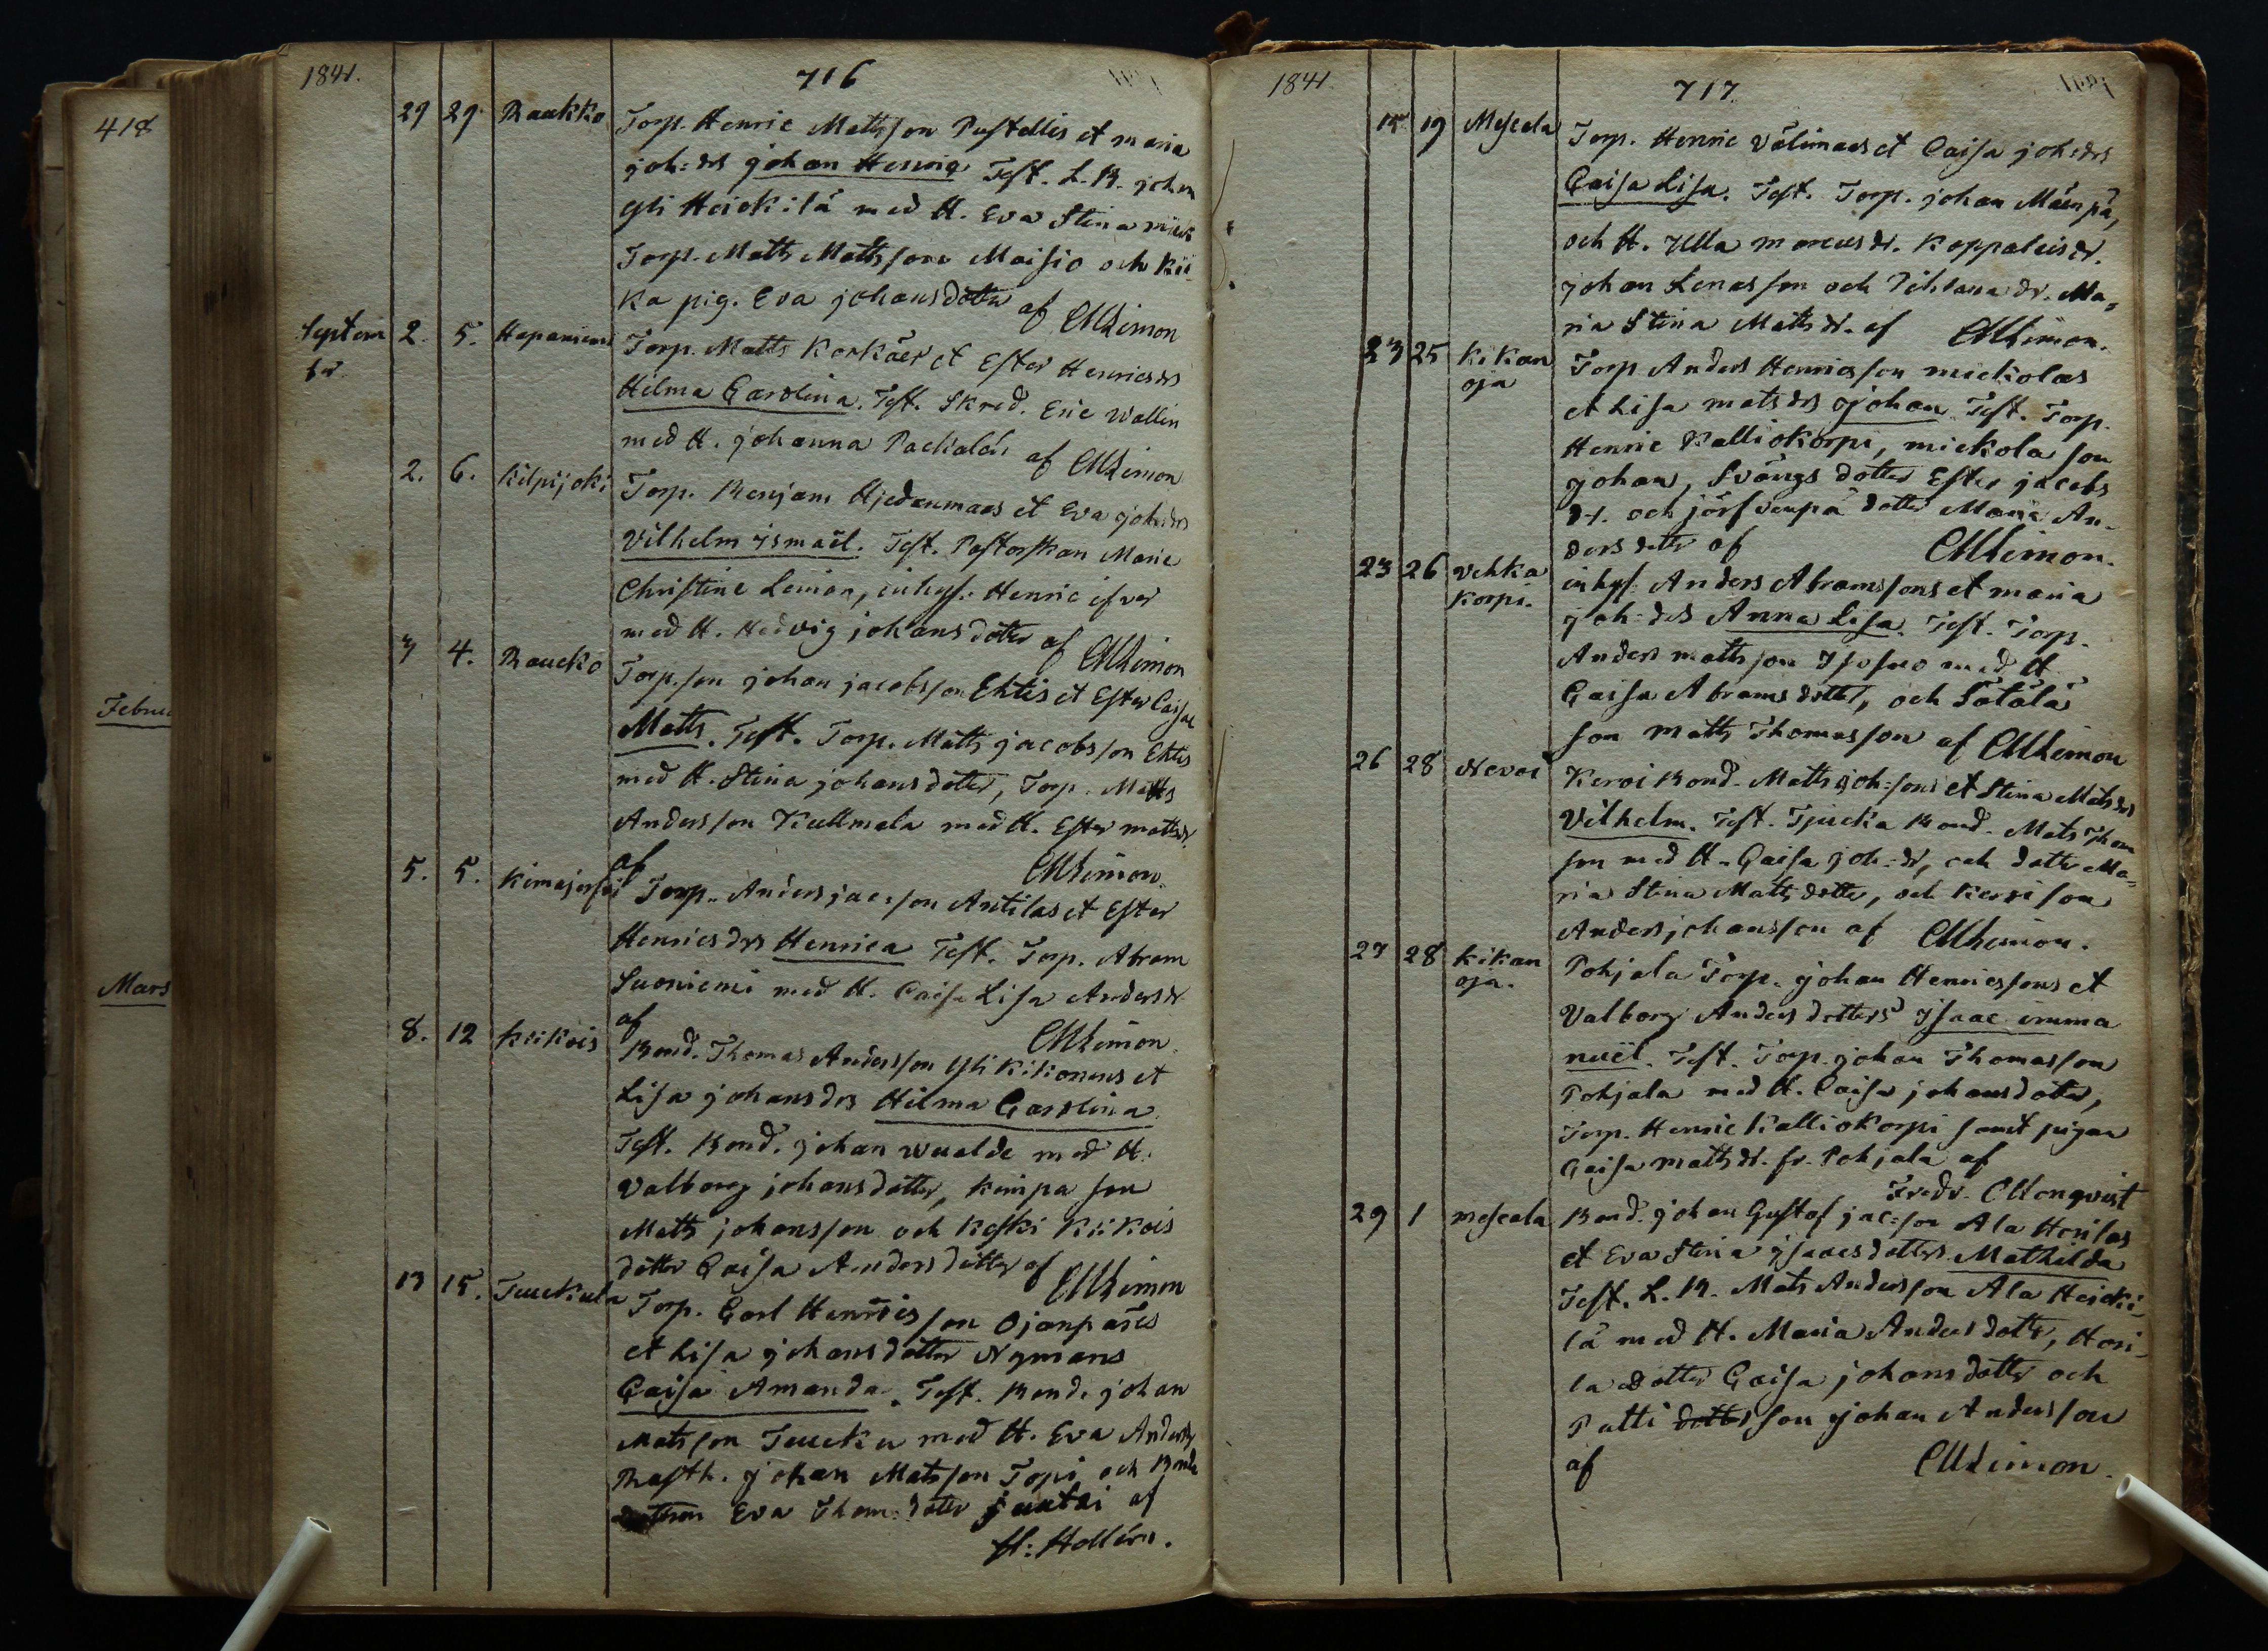 418
Febru
Mars
1841.
716
29 29. Raukko
Torp. Henric Mattsson Pustellis et maria
joh: drs johan Henric Test. L. B. johan
Yli Heickilä med H. Eva Stina
Torp. Matts Mattsson Maisio och Kii-
ka pig. Eva johansdotter af CMLimon
Septem
br.
2. 5. Hapaniemi
Torp. Matts Korkäer et Ester Henricsdrs
Hilma Carolina. Test. Skred. Eric Wallin
med H. johanna Packalén af CMLimon
2. 6. Kilpijoki
Torp. Benjam Hjedanmaas et Eva joh:drs
Vilhelm ismaël. Test. Pastorskan Maria
Christine Lemion, inhys. Henric ifver
med H. Hedvig johans dotter af CMLimon
3 4. Raucko
Torp. son johan jacobsson Ehtis et Ester Caisae
Matts. Test. Torp. Matts jacobsson Ehtis
med H. Stina johansdotter, Torp. Matts
Andersson Kullmala med H. Ester mattsdr.
af CMLimon.
5. 5. Kimajerfvi
Torp. Anders jac:son Antilas et Ester
Henricsdrs Henrica Test. Torp. Abram
Suoniemi med H. Caisa Lisa Andersdr
af CMLimon.
8. 12 Krikois
Bond. Thomas Andersson Yli Kikonens et
Lisa johansdrs Hilma Carolina
Test. Bond. johan wualde med H.
Valborg johansdotter, Kimpa son
Matts johansson och Keski Krikois
dotter Caisa Andersdotter af CMLimon
13 15. Tuuckula
Torp. Carl Henricsson Ojanpäres
et Lisa johans dotter Nymans
Caisa Amanda. Test. Bond. johan
Matsson Tuucku med H. Eva Andersdr
Rusth. johan Matsson Topi och Bonde
Eva Thoms dotter juutsi af
H: Hollérn.
1841
717.
15 19 Mescala
Torp. Henric Välimaas et Caisa joh:drs
Caisa Lisa. Test. Torp. johan Mäenpä,
och H. Ulla marcusdr. Koppaluisdr.
johan Lenasson och Pihlava dr. Ma-
ria Stina Mattsdr. af CMLimon.
23 25 Kikan
oja
Torp Anders Henricsson mickolas
et Lisa matsdrs johan Test. Torp.
Henric Kalliokorpi, mickola son
johan, Svängs dotter Ester jacobs
dr. och jörfvenpä dotter Maria An-
ders dotter af CMLimon.
23 26 Vehka
korpi.
inhys Anders Abramssons et maria
joh: drs Anna Lisa. Test. Torp.
Anders mattsson Isosuo med H
Caisa Abrams dotter, och Sötälä
son matts Thomasson af CMLimon
26 28 Nevoi
Keroi Bond. Matts joh:sons et Stina Matsdrs
Vilhelm. Test. Tjucka Bond. Mats Thom
son med H. Caisa joh:dr, och dotter Ma-
ria Stina Mattsdotter, och Keroi son
Anders johansson af CMLimon.
27 28 Kikan
oja.
Pohjala Torp. johan Henricssons et
Valborg Anders dotters Isaac imma
nuel. Test. Torp. johan Thomasson
Pohjala med H. Caisa johansdotter,
Torp. Henric Kalliokorpi samt pigan
Caisa mattsdr. fr. Pohjala af
Fredr. Monqvist
29 1 mescala
Bond. johan Gustaf jac:son Ala Honilas
et Eva Stina jsaacsdotters Mathilda
Test. L. B. Mats Andersson Ala Heicki-
lä med H. Maria Andersdotter, Honi-
la dotter Caisa johansdotter och
Patti dotter son johan Andersson
af CMLimon.